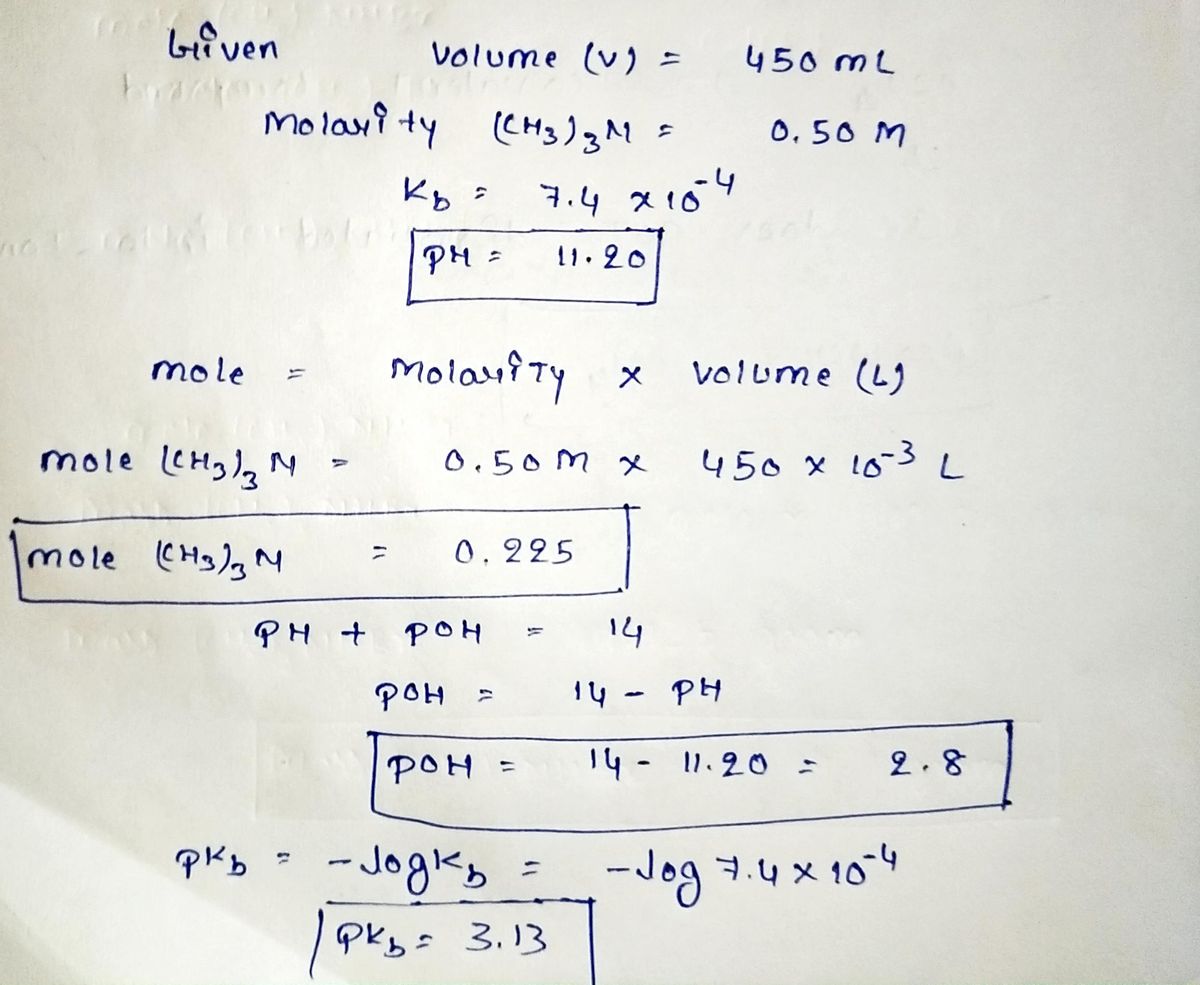 Given Volume (V) = 450 mL
Molarity (CH3)3N = 0.50 M
Kb = 7.4 x 10^-4
PH = 11.20
mole = Molarity x volume (L)
mole (CH3)3N = 0.50 M x 450 x 10^-3 L
mole (CH3)3N = 0.225
PH + POH = 14
POH = 14 - PH
POH = 14 - 11.20 = 2.8
PKb = -logKb = -log 7.4 x 10^-4
PKb = 3.13